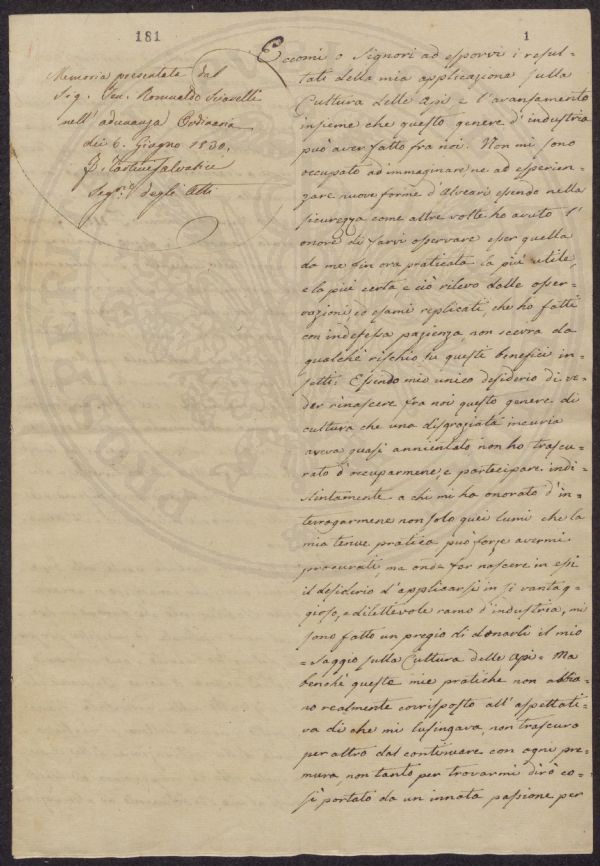 181
1
Memoria presentata dal
Sig. Ten. Romualdo
nell'adunanza Ordinaria
dei 6. Giugno 1830.
Seg.º degli Atti
Eccomi o Signori ad esporvi i resul-
tati della mia applicazione sulla
Cultura delle Api, e l'avanzamento
insieme che questo genere d'industria
può aver fatto fra noi. Non mi sono
occupato ad immaginare, ne ad esperien-
zare nuove forme d'Alveari essendo nella
sicurezza come altre volte ho avuto l'
onore di farvi osservare esser quella
da me fin ora praticata la più utile,
e la più certa, e ciò rilevo dalle osser-
vazioni, ed esami replicati, che ho fatti
con indefessa pazienza, non scevra da
qualche rischio su questi benefici in-
setti. Essendo mio unico desiderio di ve-
der rinascere fra noi questo genere di
cultura che una disgraziata incuria
aveva quasi annientato non ho trascu-
rato d'occuparmene, e partecipare indi-
stintamente a chi mi ha onorato d'in-
terrogarmene non solo quei lumi che la
mia tenue pratica può forse avermi
procurati, ma onde far nascere in essi
il desiderio d'applicarsi in sì vantag-
gioso, e dilettevole ramo d'industria, mi
sono fatto un pregio di donarli il mio
= Saggio sulla Cultura delle Api = Ma
benchè queste mie pratiche non abbia-
no realmente corrisposto all'aspettati-
va di che mi lusingava, non trascuro
per altro dal continuare con ogni pre-
mura, non tanto per trovarmi dirò co-
sì portato da un innata passione per